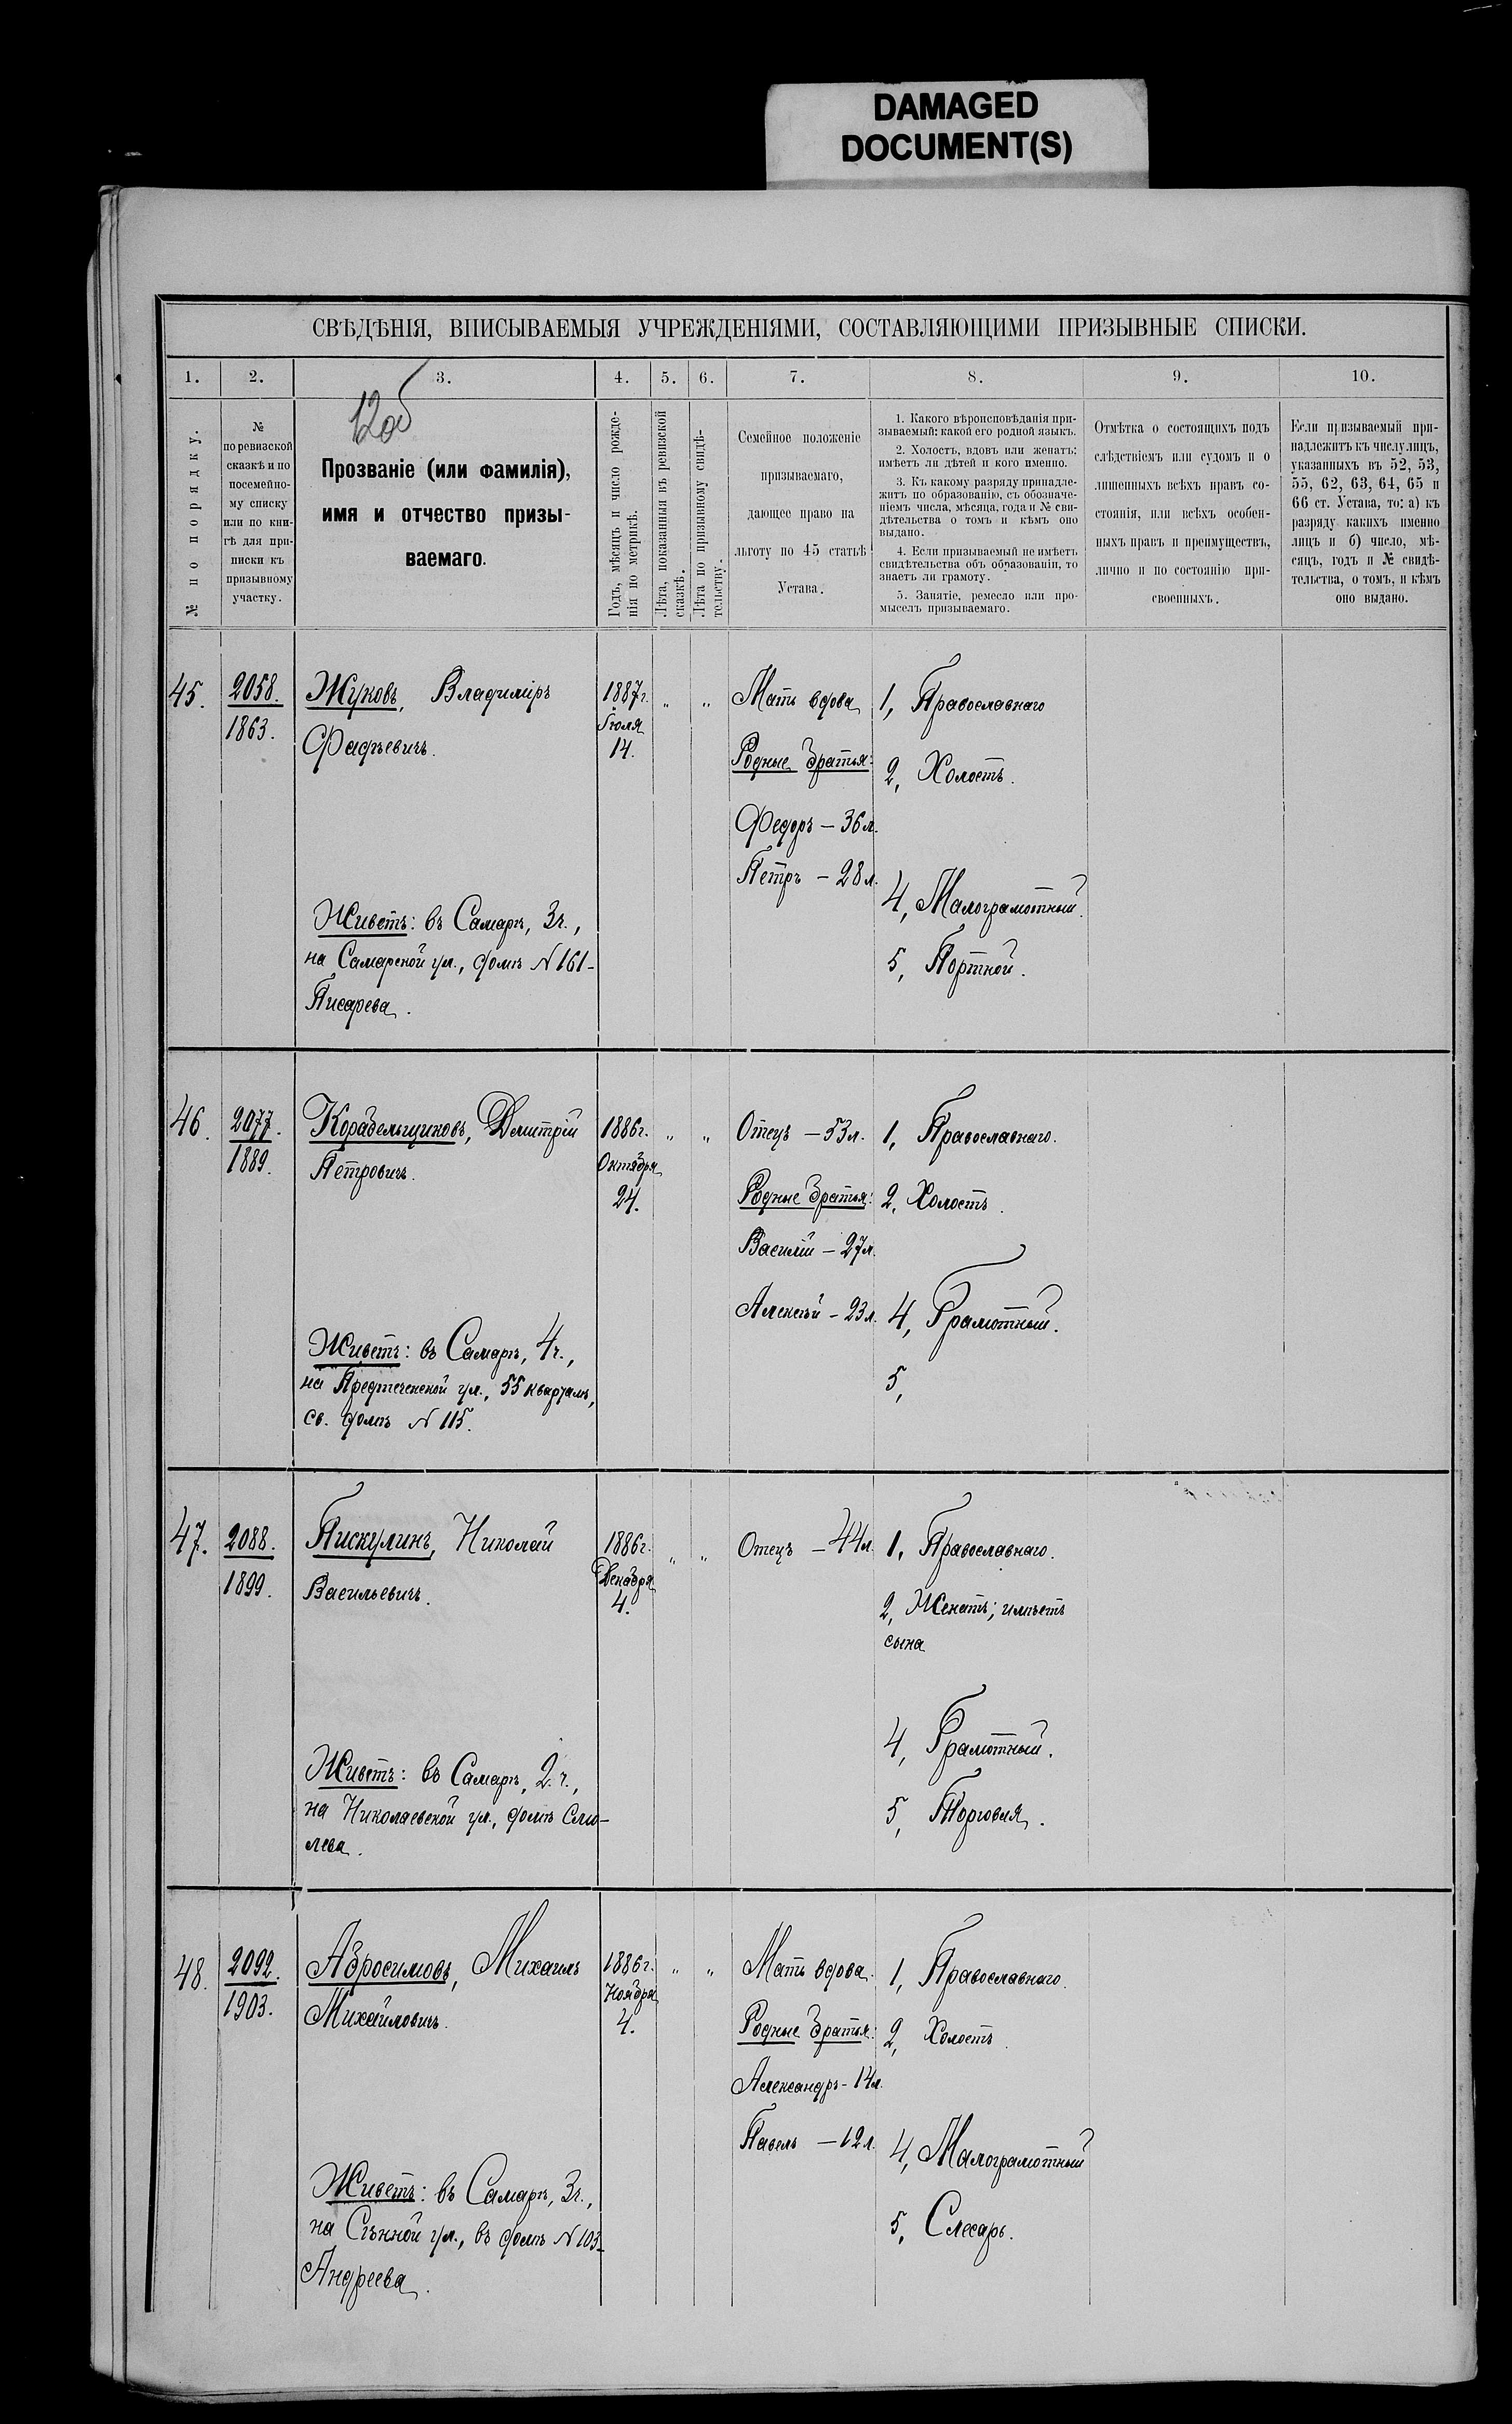 DAMAGED
DOCUMENT(S)
СВѢДѢНІЯ, ВПИСЫВАЕМЫЯ УЧРЕЖДЕНІЯМИ, СОСТАВЛЯЮЩИМИ ПРИЗЫВНЫЕ СПИСКИ.
1. 2. 3. 4. 5. 6. 7. 8. 9. 10.
12об
№ по порядку.
№
по ревизской
сказкѣ и по
посемейно-
му списку
или по кни-
гѣ для при-
писки къ
призывному
участку.
Прозваніе (или фамилія),
имя и отчество призы-
ваемаго.
Годъ, мѣсяцъ и число рожде-
нія по метрикѣ.
Лѣта, показанныя въ ревизской
сказкѣ.
Лѣта по призывному свидѣ-
тельству.
Семейное положеніе
призываемаго,
дающее право на
льготу по 45 статьѣ
Устава.
1. Какого вѣроисповѣданія при-
зываемый: какой его родной языкъ.
2. Холостъ, вдовъ или женатъ:
имѣетъ ли дѣтей и кого именно.
3. Къ какому разряду принадле-
житъ по образованію, съ обозначе-
ніемъ числа, мѣсяца, года и № сви-
дѣтельства о томъ и кѣмъ оно
выдано.
4. Если призываемый не имѣетъ
свидѣтельства объ образованіи, то
знаетъ ли грамоту.
5. Занятіе, ремесло или про-
мыселъ призываемаго.
Отмѣтка о состоящихъ подъ
слѣдствіемъ или судомъ и о
лишенныхъ всѣхъ правъ со-
стоянія, или всѣхъ особен-
ныхъ правъ и преимуществъ,
лично и по состоянію при-
своенныхъ.
Если призываемый при-
надлежитъ къ числу лицъ,
указанныхъ въ 52, 53,
55, 62, 63, 64, 65 и
66 ст. Устава, то: а) къ
разряду какихъ именно
лицъ и б) число, мѣ-
сяцъ, годъ и № свидѣ-
тельства, о томъ, и кѣмъ
оно выдано.
45.
2058.
1863.
Жуковъ, Владиміръ
Фадѣевичъ.
Живетъ: въ Самарѣ, 3ч.,
на Самарской ул., домъ № 161-
Писарева.
1887г.
Іюля
14.
" "
Мать вдова
Родные братья:
Федоръ – 36 л.
Петръ – 28 л.
1, Православнаго
2, Холостъ.
4, Малограмотный.
5, Портной.
46.
2077.
1889.
Корабельщиковъ, Дмитрій
Петровичъ.
Живетъ: въ Самарѣ, 4ч.,
на Предтеченской ул., 55 кварталъ,
св. домъ № 115.
1886г.
Октября
24.
" "
Отецъ – 53 л.
Родные братья:
Василій – 27 л.
Алексѣй – 23 л.
1, Православнаго.
2, Холостъ.
4, Грамотный.
5,
47.
2088.
1899.
Пискулинъ, Николай
Васильевичъ.
Живетъ: въ Самарѣ, 2.ч.,
на Николаевской ул., домъ
1886г.
Декабря
4.
" "
Отецъ – 44 л.
1, Православнаго.
2, Женатъ; имѣетъ
сына
4, Грамотный.
5, Торговля.
48.
2092.
1903.
Абросимовъ, Михаилъ
Михайловичъ.
Живетъ: въ Самарѣ, 3ч.,
на Сѣнной ул., въ домѣ № 103-
Андреева.
1886г.
Ноября
4.
" "
Мать вдова.
Родные братья:
Александръ – 14 л.
Павелъ – 12 л.
1, Православнаго.
2, Холостъ.
4, Малограмотный
5, Слесарь.